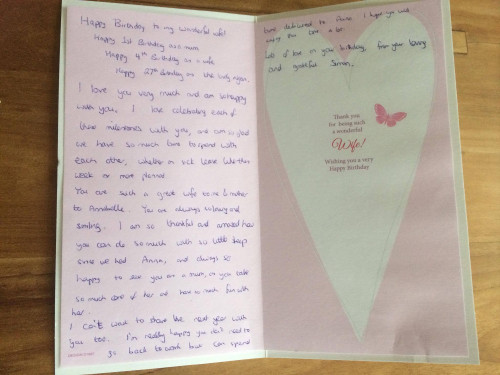 Happy Birthday to my wonderful wife!
Happy 1st Birthday as a mum
Happy 4th Birthday as a wife
Happy 27th Birthday as the lady
I love you very much and am so happy
with you. I love celebrating each of
these milestones with you, and am so glad
we have so much time to spend with
each other, whether on sick leave like this
week or more planned.
You are such a great wife to me & mother
to Annabelle. You are always so loving and
smiling. I am so thankful and amazed how
you can do so much with so little sleep
since we had Anna, and always so
happy to see you as a mum, as you take
so much care of her and have so much fun with
her.
I can't wait to share the next year with
you too. I'm really happy you don't need to
go back to work but can spend
time to Anna. I hope you will
enjoy this one a lot.
Lots of love on your birthday, from your loving
and grateful Simon.
Thank you
for being such
a wonderful
Wife!
Wishing you a very
Happy Birthday